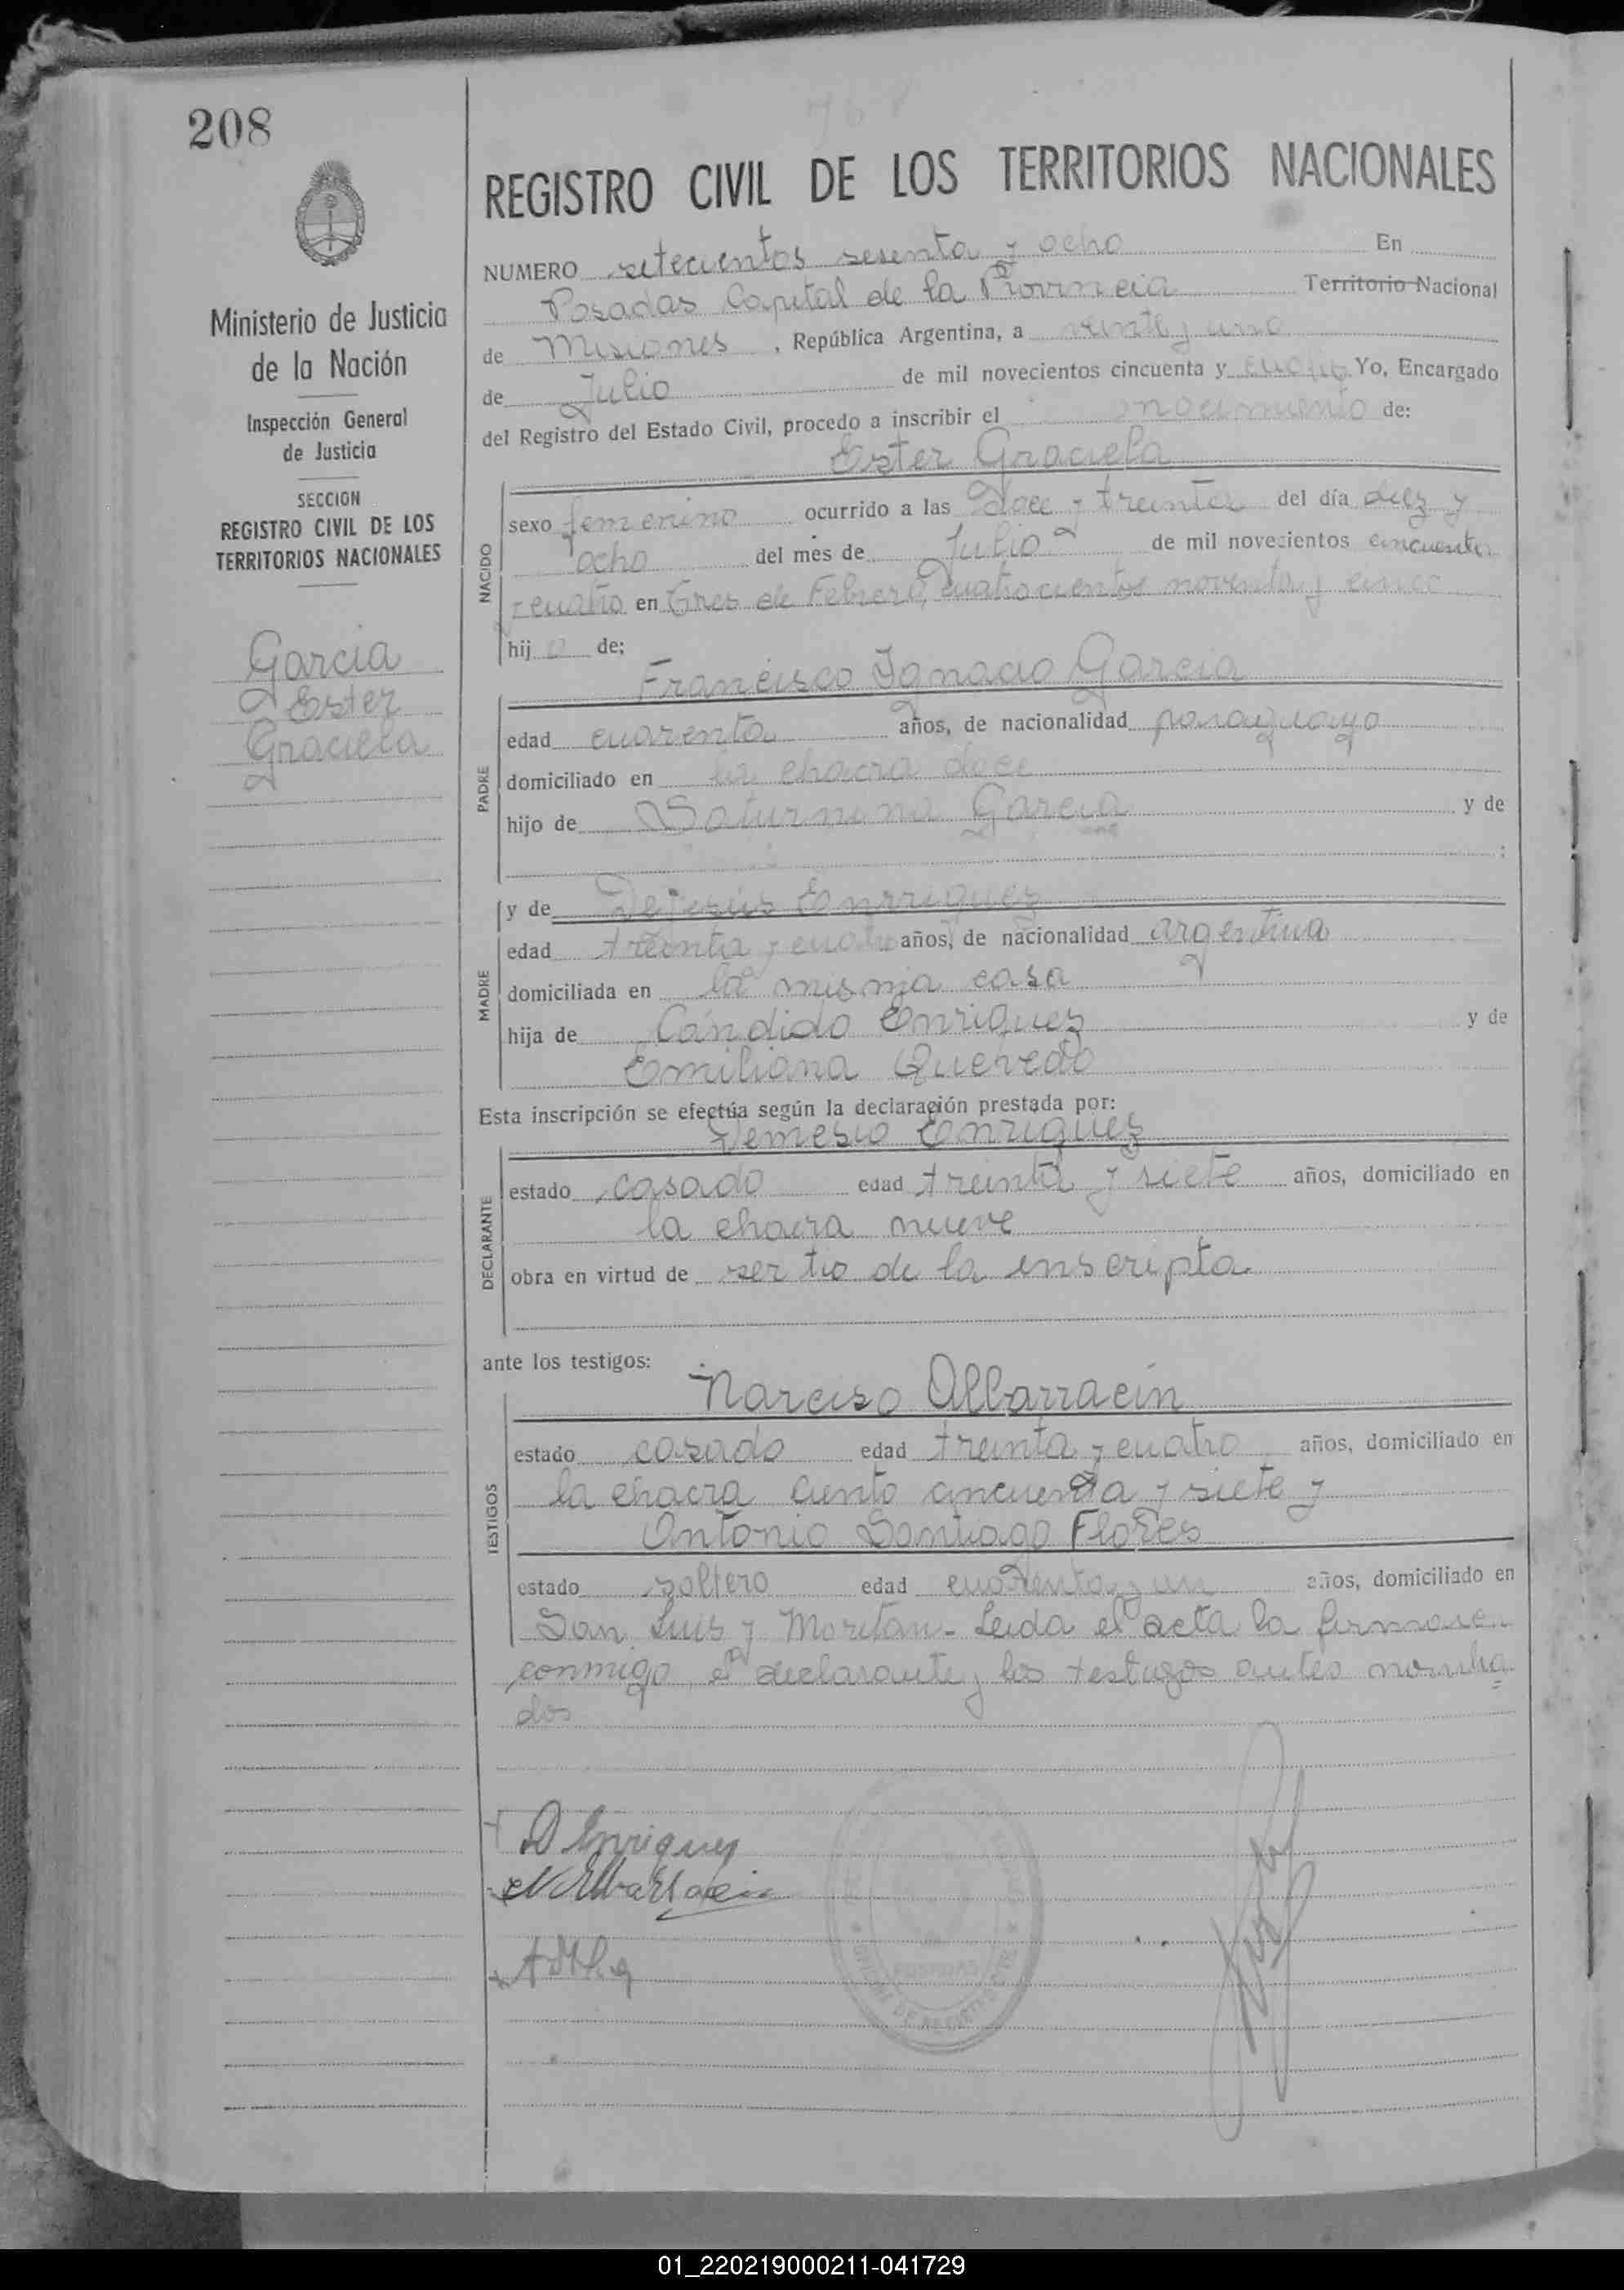 208
768
REGISTRO CIVIL DE LOS TERRITORIOS NACIONALES
NUMERO setecientos sesenta y ocho En
Posadas Capital de la Provincia Territorio Nacional
de Misiones, República Argentina, a veinte y uno
de Julio de mil novecientos cincuenta y cuatro Yo, Encargado
del Registro del Estado Civil, procedo a inscribir el nacimiento de:
Ester Graciela
Ministerio de Justicia
de la Nación
Inspección General
de Justicia
SECCION
REGISTRO CIVIL DE LOS
TERRITORIOS NACIONALES
Garcia
Ester
Graciela
NACIDO
sexo femenino ocurrido a las doce y treinta del día diez y
ocho del mes de Julio de mil novecientos cincuenta
y cuatro en Tres de Febrero, cuatrocientos noventa y cinco
hij a de:
Francisco Ignacio Garcia
PADRE
edad cuarenta años, de nacionalidad paraguayo
domiciliado en la chacra doce
hijo de Saturnina Garcia y de
;
y de Dejesús Enrriquez
MADRE
edad treinta y cuatro años, de nacionalidad argentina
domiciliada en la misma casa
hija de Cándido Enriquez y de
Emiliana Quevedo
Esta inscripción se efectúa según la declaración prestada por:
Demesio Enriquez
DECLARANTE
estado casado edad treinta y siete años, domiciliado en
la chacra nueve
obra en virtud de ser tio de la inscripta
ante los testigos:
Narciso Albarracin
TESTIGOS
estado casado edad treinta y cuatro años, domiciliado en
la chacra ciento cincuenta y siete y
Antonio Santiago Flores
estado soltero edad cuarenta y un años, domiciliado en
San Luis y Moritan - Leida el acta la firmaron
conmigo, el declarante y los testigos antes nombra=
dos
D Enriquez
N Albarracin
POSADAS
01_220219000211-041729